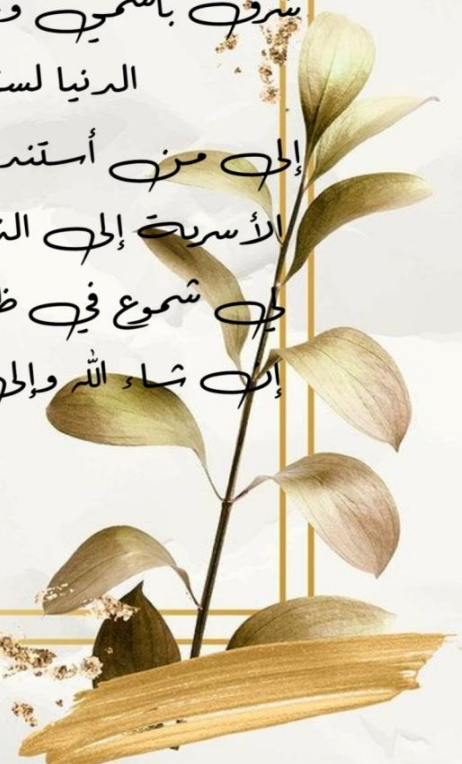 باسمي
الدنيا
إلى من أستند
الأسرية إلى
لي شموع في
إن شاء الله وإلى